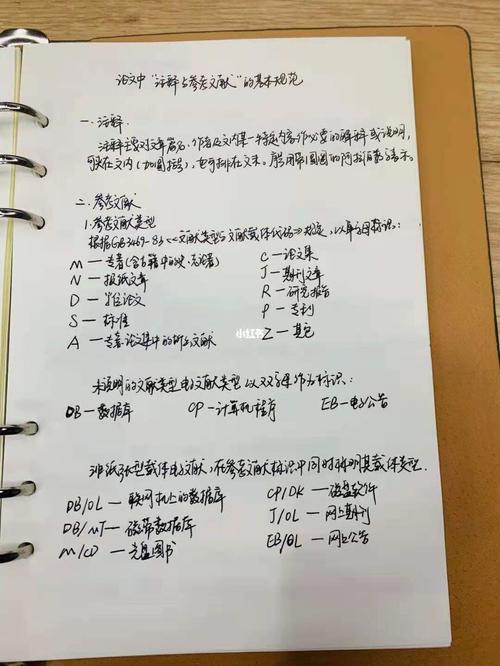 论文中“注释与参考文献”的基本规范
一.注释.
注释主要对文章篇名、作者及文内某一特定内容作必要的解释或说明,
可夹在文内(加圆括号),也可排在文末。序号用带圆圈的阿拉伯数字表示。
二.参考文献
1.参考文献类型
根据GB3469-83《文献类型与文献载体代码》规定,以单字母标识:
M—专著(含古籍中的史、志论著) C—论文集
N—报纸文章 J—期刊文章
D—学位论文 R—研究报告
S—标准 P—专利
A—专著、论文集中的析出文献 Z—其它
小红书
未说明的文献类型电子文献类型以双字母作为标识:
DB—数据库 CP—计算机程序 EB—电子公告
非纸张型载体电子文献,在参考文献标识中同时标明其载体类型.
DB/OL—联网机上的数据库 CP/DK—磁盘软件
DB/MT—磁带数据库 J/OL—网上期刊
M/CD—光盘图书 EB/OL—网上公告